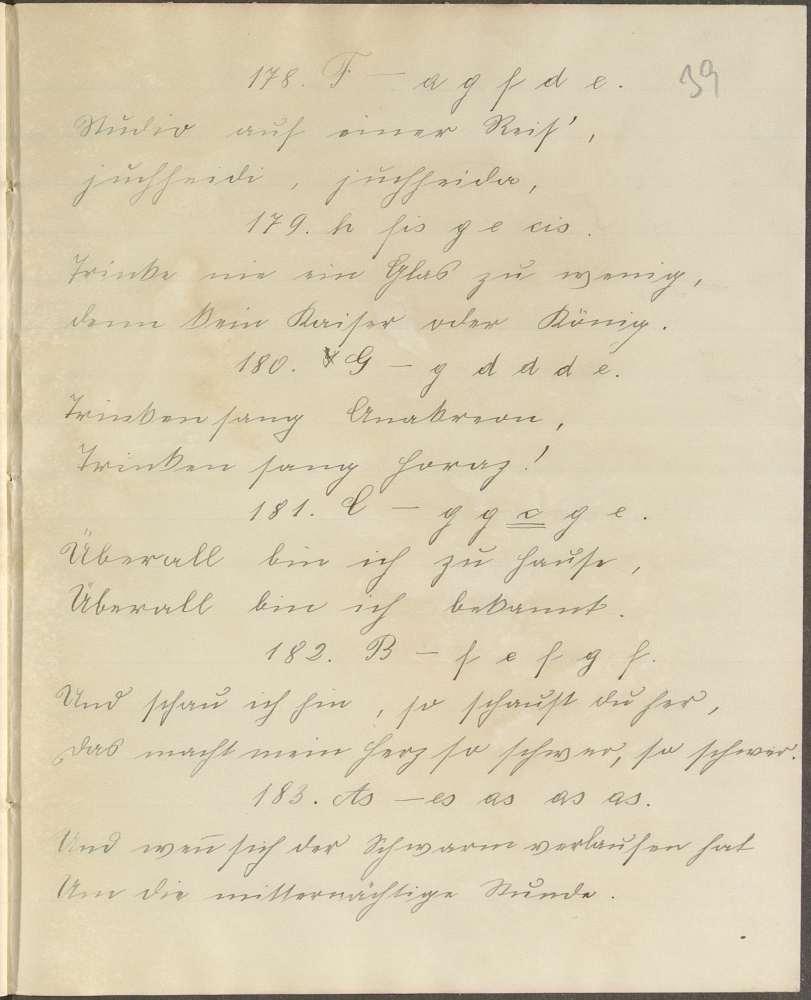 178. F — a g f d e.
39
Studio auf einer Reis',
juchheidi, juchheida,
179. h fis g e cis.
Trinke nie ein Glas zu wenig,
denn kein Kaiser oder König.
180. G — g d d d e.
Trinken sang Anakreon,
Trinken sang Horaz!
181. C — g g c g e.
Überall bin ich zu Hause,
Überall bin ich bekannt.
182. B — f e f g f.
Und schau ich hin, so schaust du her,
Das macht mein Herz so schwer, so schwer.
183. As — es as as as.
Und wen̄ sich der Schwarm verlaufen hat
Um die mitternächtige Stunde.